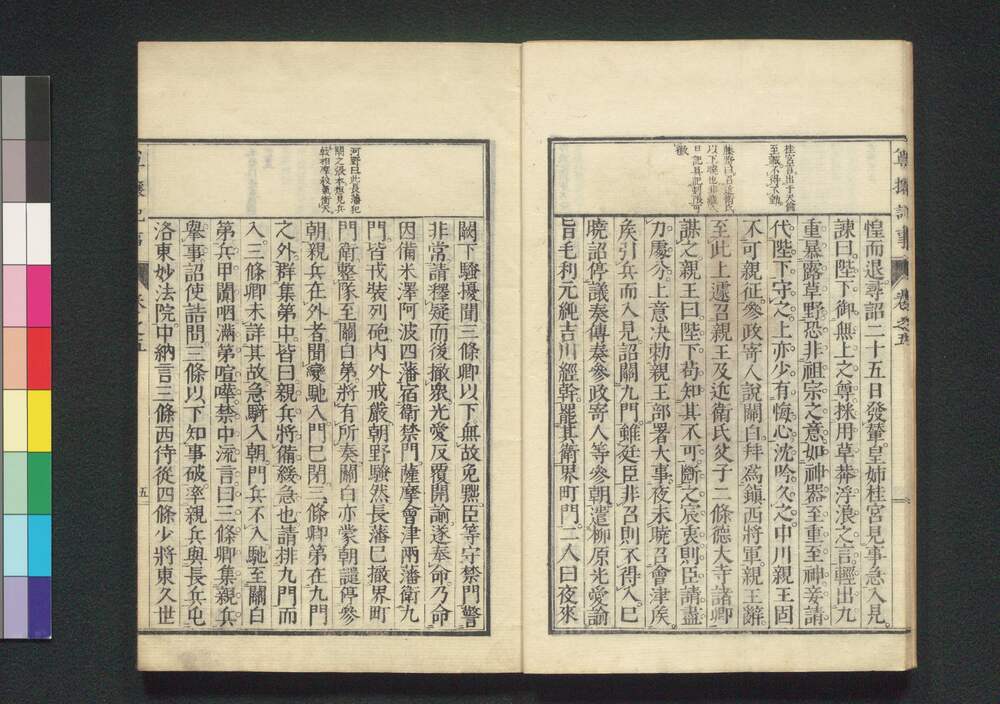 尊攘記事
卷之五
桂宮言出于天倫
至誠不得不動
惶而退尋詔二十五日發輦皇姉桂宮見事急入見
諫曰陛下御無上之尊採用草莽浮浪之言輕出九
重暴露草野恐非祖宗之意如神器至重至神妾請
代陛下守之上亦少有悔心沈吟久之中川親王固
不可親征參政寄人說關白拜爲鎭西將軍親王辭
至此上遽召親王及近衛氏父子二條德大寺諸卿
謀之親王曰陛下苟知其不可斷之宸衷則臣請盡
力處分上意決勅親王部署大事夜未曉召會津侯
侯引兵而入見詔關九門雖廷臣非召則不得入巳
曉詔停議奏傳奏參政寄人等參朝遣柳原光愛諭
旨毛利元純吉川經幹罷其衛界町門二人曰夜來
河野曰此長藩犯
闕之張本想見兵
闕下騷擾聞三條卿以下無故免黜臣等守禁門警
非常請釋疑而後撤衆光愛反覆開諭遂奉命乃命
因備米澤阿波四藩宿衛禁門薩摩會津兩藩衛九
門皆戎裝列砲內外戒嚴朝野騷然長藩巳撤界町
門衛整隊至關白第將有所奏關白亦蒙朝譴停參
朝親兵在外者聞變馳入門巳閉三條卿第在九門
之外群集第中皆曰親兵將備緩急也請排九門而
入三條卿未詳其故急騎入朝門兵不入馳至關白
第兵甲闐咽滿第喧嘩禁中流言曰三條卿集親兵
擧事詔使詰問三條以下知事破率親兵與長兵屯
洛東妙法院中納言三條西侍從四條少將東久世
尊攘記事
卷之五
五